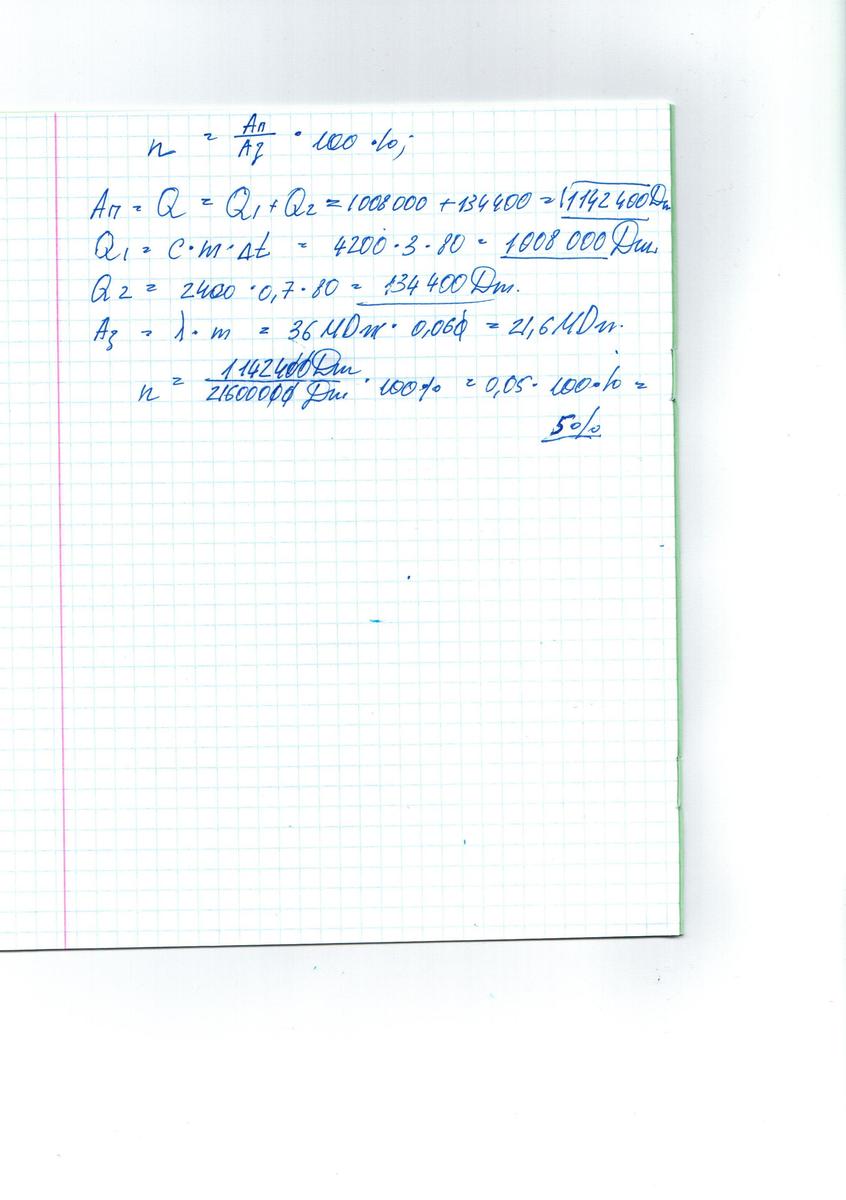 n = Aп/Aз · 100 %;
Aп = Q = Q1 + Q2 = 1008000 + 134400 = 1142400 Дж
Q1 = C · m · Δt = 4200 · 3 · 80 = 1008 000 Дж.
Q2 = 2400 · 0,7 · 80 = 134 400 Дж.
Aз = λ · m = 36 МДж · 0,06 = 21,6 МДж.
n = 1142400 Дж/21600000 Дж · 100 % = 0,05 · 100 % =
5 %